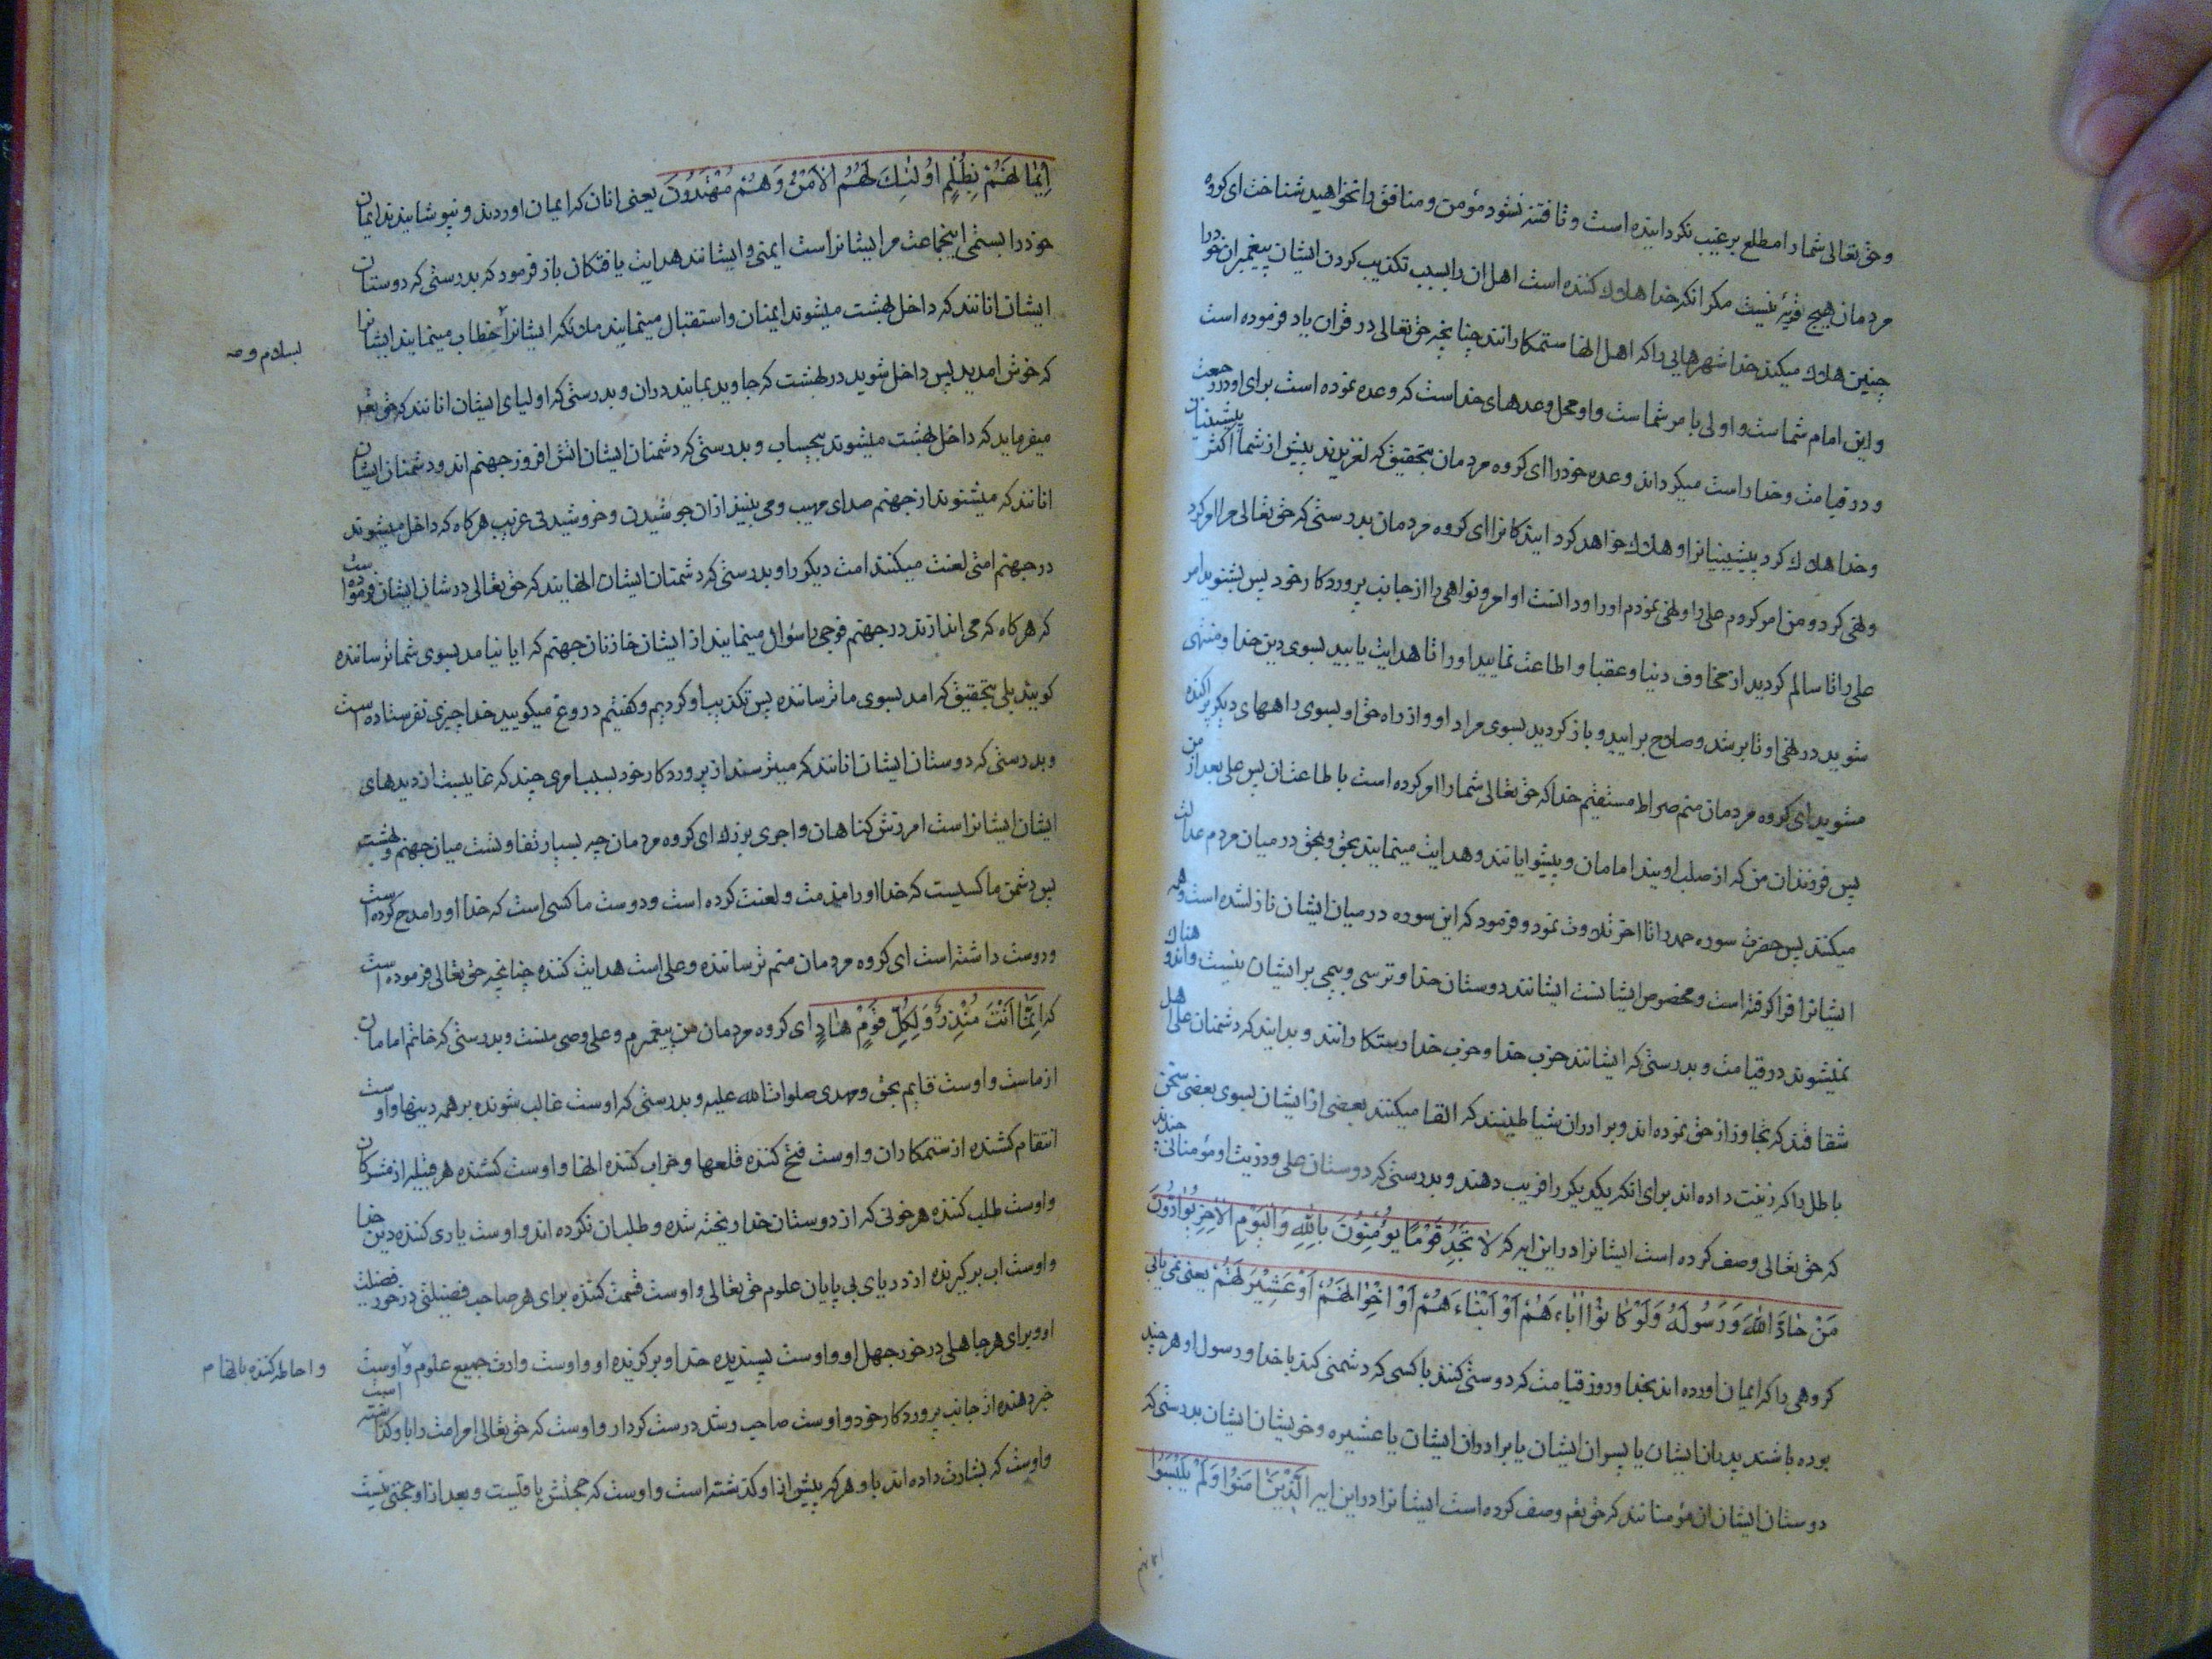 وحق تعالی شما را مطلع بر غیب نکردانیده است و تا فتنه نشود مؤمن و منافق را نخواهید شناخت ای کروه
مردمان هیچ قریهٔ نیست مکر انکه خدا هلاک کننده است اهل ان را بسبب تکذیب کردن ایشان پیغمبران خود را
چنین هلاک میکند خدا شهرهایی را که اهل انها ستمکارانند چنانچه حق تعالی در قران یاد فرموده است
و این امام شماست و اولی بامر شماست و او محل وعدهای خداست که وعده نموده است برای او در رجعت
و در قیامت و خدا راست میکرداند وعده خود را ای کروه مردمان بتحقیق که لغزیدند پیش از شما اکثر پیشینیان
و خدا هلاک کرد پیشینیانرا و هلاک خواهد کردایندکانرا ای کروه مردمان بدرستی که حق تعالی مرا امر کرد
و نهی کرد و من امر کردم علی را و نهی نمودم او را و دانست اوامر و نواهی را از جانب پروردکار خود پس بشنوید امر
علی را تا سالم کردید از مخاوف دنیا و عقبا و اطاعت نمایید او را تا هدایت یابید بسوی دین خدا و منتهی
شوید در نهی او تا برشد و صلاح برایید و بازکردید بسوی مراد او و از راه حق او بسوی راههای دیکر پراکنده
مشوید ای کروه مردمان منم صراط مستقیم خدا که حق تعالی شما را امر کرده است باطاعت ان پس علی بعد از من
پس فرزندان من که از صلب اویند امامان و پیشوایانند و هدایت مینمایند بحق و بحق در میان مردم عدالت
میکنند پس حضرت سوره حمد را تا اخر تلاوت نمود و فرمود که این سوره در میان ایشان نازلشده است و همه
ایشانرا فرا کرفته است و مخصوص ایشانست ایشانند دوستان خدا و ترسی و بیمی بر ایشان نیست و اندوهناک
نمیشوند در قیامت و بدرستی که ایشانند حزب خدا و حزب خدا رستکارانند و بدانید که دشمنان علی اهل
شقاقند که تجاوز از حق نموده‌اند و برادران شیاطینند که القا میکنند بعضی از ایشان بسوی بعضی سخن چند
باطل را که زینت داده‌اند برای انکه یکدیکر را فریب دهند و بدرستی که دوستان علی و ذریت او مؤمنانی‌اند
که حق تعالی وصف کرده است ایشانرا در این ایه که لا تَجِدُ قَوْمًا یُؤْمِنُونَ بِاللّهِ وَالْیَوْمِ الْاخِرِ یُوَادُّونَ
مَنْ حَادَّ اللّهَ وَرَسُولَهُ وَلَوْ کَانُوْا ابَاءَهُمْ اَوْ اَبْنَاءَهُمْ اَوْ اِخْوَانَهُمْ اَوْ عَشِیْرَتَهُمْ یعنی نمی یابی
کروهی را که ایمان اورده‌اند بخدا و روز قیامت که دوستی کنند با کسی که دشمنی کند با خدا و رسول او هر چند
بوده باشند پدران ایشان یا پسران ایشان یا برادران ایشان یا عشیره و خویشان ایشان بدرستی که
دوستان ایشان ان مؤمنانند که حق تعم وصف کرده است ایشانرا در این ایه الَّذِیْنَ امَنُوْا وَلَمْ یَلْبِسُوْا
ایمانهم
اِیْمَانَهُمْ بِظُلْمٍ اُولٰئِكَ لَهُمُ الْاَمْنُ وَهُمْ مُهْتَدُوْنَ یعنی انان که ایمان اوردند و نپوشانیدند ایمان
خود را بستمی اینجماعت مر ایشانراست ایمنی و ایشانند هدایت یافتکان باز فرمود که بدرستی که دوستان
ایشان انانند که داخل بهشت میشوند ایمنان و استقبال مینمایند ملائکه ایشانرا خطاب مینمایند ایشانرا
بسلام و
که خوش امدید پس داخل شوید در بهشت که جاوید بمانید دران و بدرستی که اولیای ایشان انانند که حق تعم
میفرماید که داخل بهشت میشوند بیحساب و بدرستی که دشمنان ایشان اتش افروز جهنم‌اند و دشمنان ایشان
انانند که میشنوند از جهنم صدای مهیب و می بینند ازان جوشیدن و خروشیدنی عزیب هرکاه که داخل میشوند
در جهنم امتی لعنت میکنند امت دیکر را و بدرستی که دشمنان ایشان انهایند که حق تعالی در شان ایشان فرموده است
که هرکاه که می اندازند در جهنم فوجی را سؤال مینمایند از ایشان خازنان جهنم که ایا نیامد بسوی شما ترساننده
کویند بلی بتحقیق که امد بسوی ما ترساننده پس تکذیب او کردیم و کفتیم دروغ میکویید خدا چیزی نفرستاده است
و بدرستی که دوستان ایشان انانند که میترسند از پروردکار خود بسبب امری چند که غایبست از دیدهای
ایشان ایشانراست امرزش کناهان و اجری بزرك ای کروه مردمان چه بسیار تفاوتست میان جهنم و بهشت
پس دشمن ما کسیست که خدا او را مذمت و لعنت کرده است و دوست ما کسی است که خدا او را مدح کرده است
و دوست داشته است ای کروه مردمان منم ترساننده و علی است هدایت کننده چنانچه حق تعالی فرموده است
که اِنَّمَا اَنْتَ مُنْذِرٌ وَلِكُلِّ قَوْمٍ هَادٍ ای کروه مردمان من پیغمبرم و علی وصی منست و بدرستی که خاتم امامان
از ماست و اوست قایم بحق و مهدی صلوات الله علیه و بدرستی که اوست غالب شونده بر همه دینها و اوست
انتقام کشنده از ستمکاران و اوست فتح کننده قلعها و خراب کننده انها و اوست کشنده هر قبیله از مشرکان
و اوست طلب کننده هر خونی که از دوستان خدا ریخته شده و طلب ان نکرده‌اند و اوست یاری کننده دین خدا
و اوست اب برکیرنده از دریای بی پایان علوم حق تعالی و اوست قسمت کننده برای هر صاحب فضیلتی در خور فضیلت
او و برای هر جاهلی در خور جهل او و اوست پسندیده خدا و برکزیده او و اوست وارث جمیع علوم و اوست
و احاطه کننده بانها م
خبر دهنده از جانب پروردکار خود و اوست صاحب رشد درست کردار و اوست که حق تعالی امر امت را باو کذاشته است
و اوست که بشارت داده‌اند باو هر که پیش از او کذشته است و اوست که حجتش باقیست و بعد از او حجتی نیست